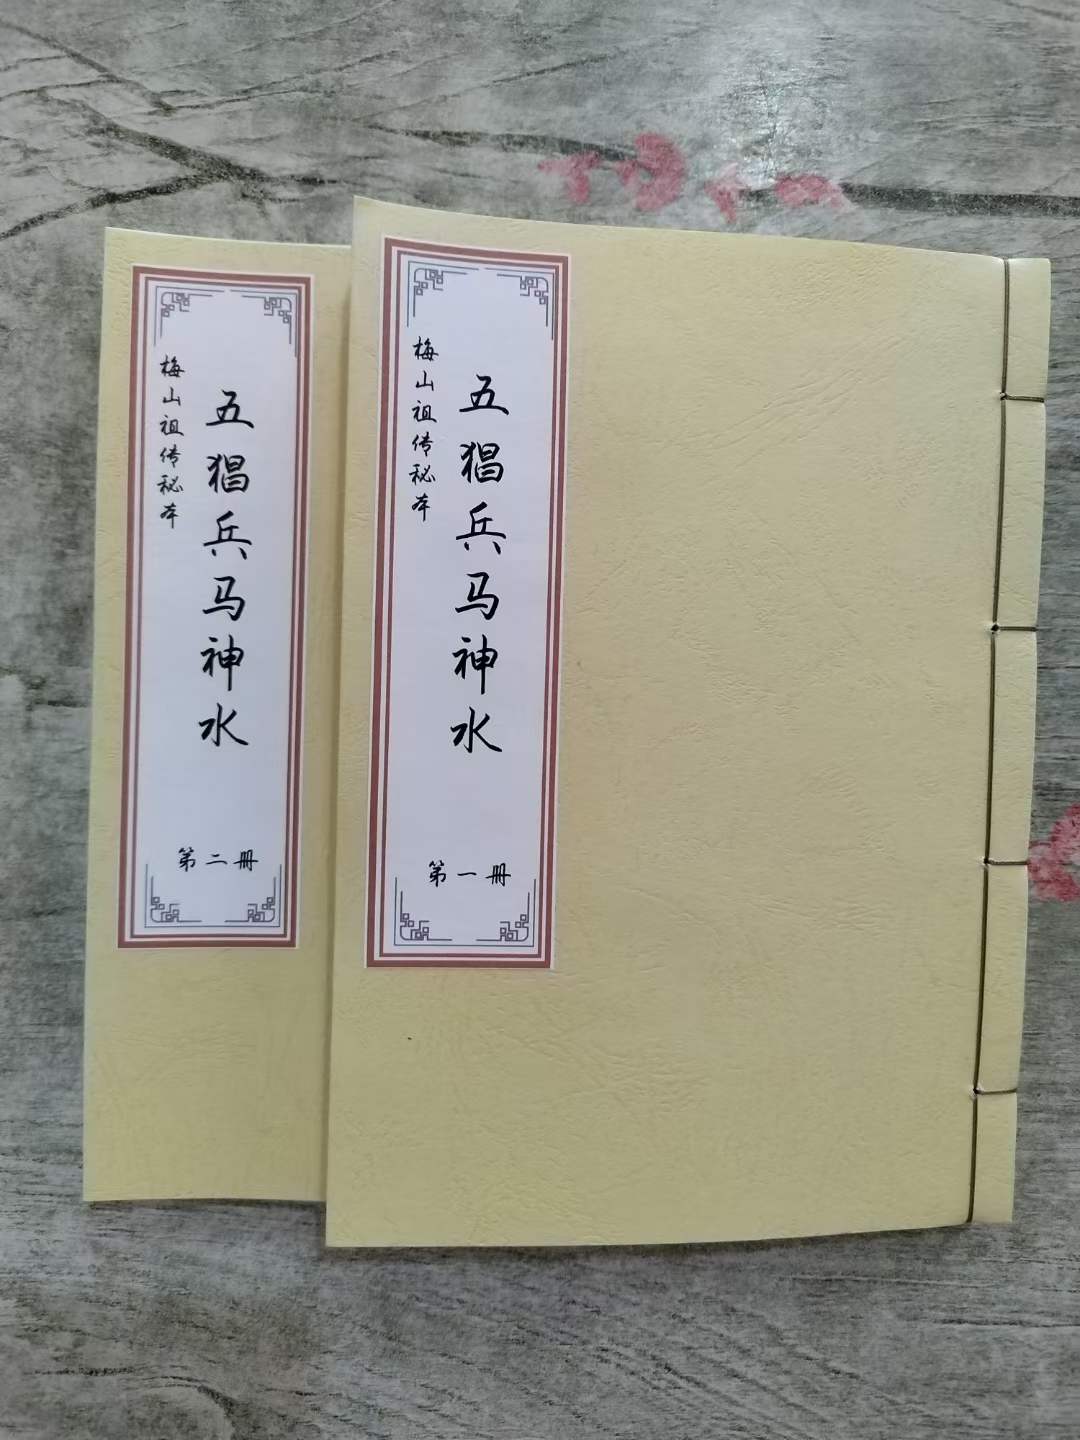 梅山祖传秘本
五猖兵马神水
第二册
梅山祖传秘本
五猖兵马神水
第一册